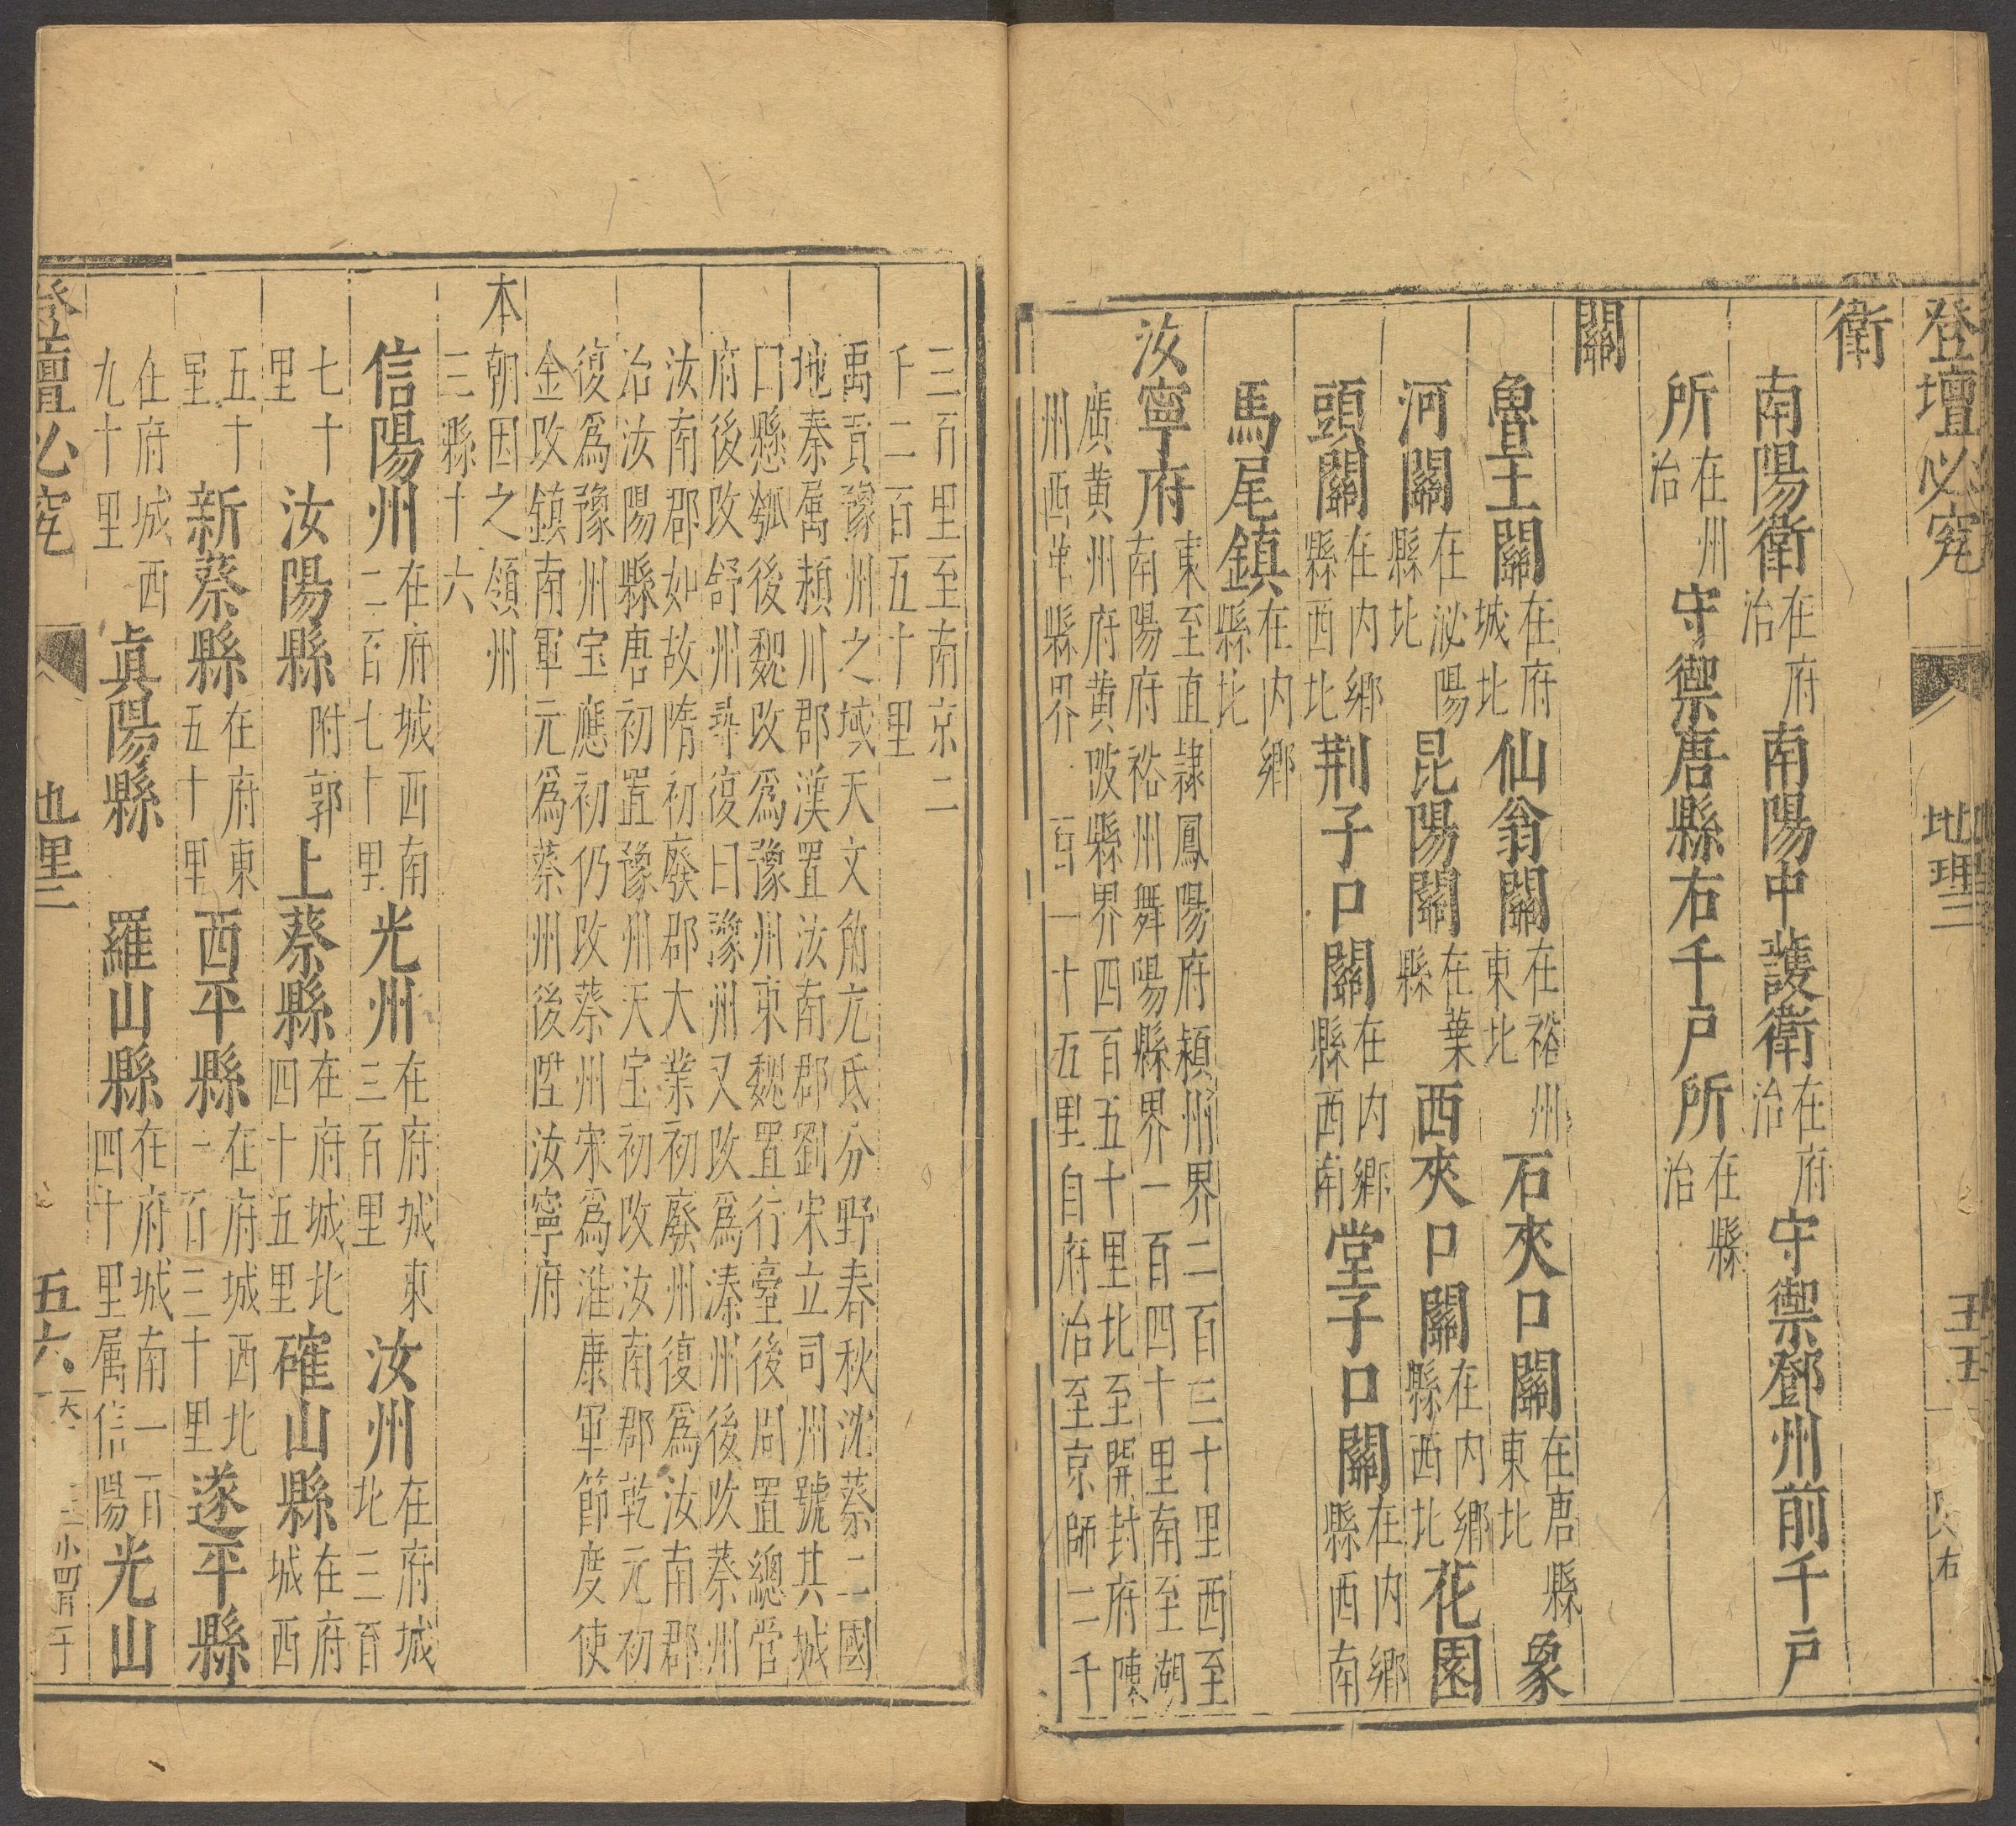 登壇必究
地理二
五五
衛
南陽衛在府治南陽中護衛在府治守禦鄧州前千戶
所在州治守禦唐縣右千戶所在縣治
關
魯王關在府城北仙翁關在裕州東北石夾口關在唐縣東北象
河關在泌陽縣北昆陽關在葉縣西夾口關在內鄉縣西北花園
頭關在內鄉縣西北荆子口關在內鄉縣西南堂子口關在內鄉縣西南
馬尾鎮在內鄉縣北
汝寧府東至直隷鳳陽府潁州界二百三十里西至
南陽府裕州舞陽縣界一百四十里南至湖
廣黃州府黃陂縣界四百五十里北至開封府陳
州西華縣界一百一十五里自府治至京師二千
三百里至南京二
千二百五十里
禹貢豫州之域天文角亢氐分野春秋沈蔡二國
地秦屬潁川郡漢置汝南郡劉宋立司州號其城
曰懸瓠後魏改爲豫州東魏置行臺後周置總管
府後改舒州尋復曰豫州又改爲溱州後改蔡州
汝南郡如故隋初廢郡大業初廢州復爲汝南郡
治汝陽縣唐初置豫州天宝初改汝南郡乾元初
復爲豫州宝應初仍改蔡州宋爲淮康軍節度使
金改鎮南軍元爲蔡州後陞汝寧府
本
朝因之領州
三縣十六
信陽州在府城西南二百七十里光州在府城東三百里汝州在府城北三百
七十里汝陽縣附郭上蔡縣在府城北四十五里確山縣在府城西
五十里新蔡縣在府東五十里西平縣在府城西北一百三十里遂平縣
在府城西九十里真陽縣羅山縣在府城南一百四十里屬信陽光山
登壇必究
地理二
五六